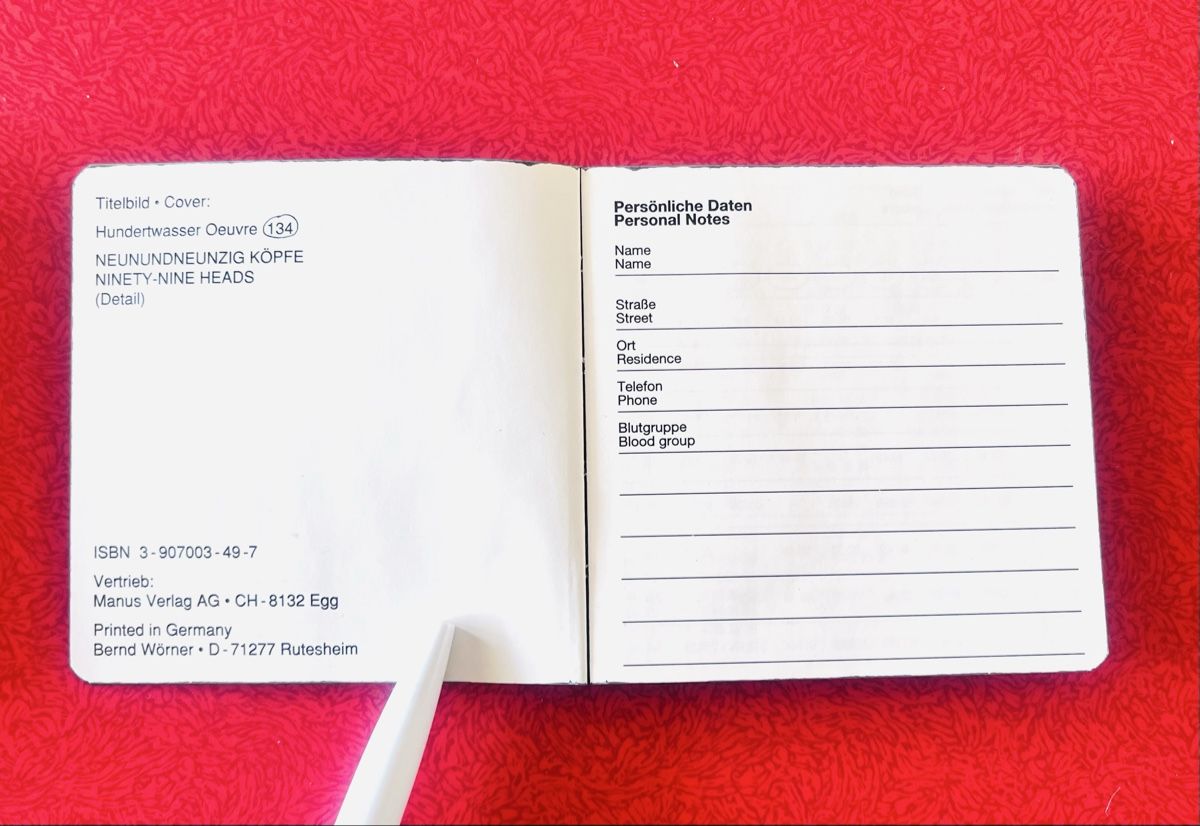 Titelbild • Cover:
Hundertwasser Oeuvre 134
NEUNUNDNEUNZIG KÖPFE
NINETY-NINE HEADS
(Detail)
ISBN 3-907003-49-7
Vertrieb:
Manus Verlag AG • CH-8132 Egg
Printed in Germany
Bernd Wörner • D-71277 Rutesheim
Persönliche Daten
Personal Notes
Name
Name
Straße
Street
Ort
Residence
Telefon
Phone
Blutgruppe
Blood group